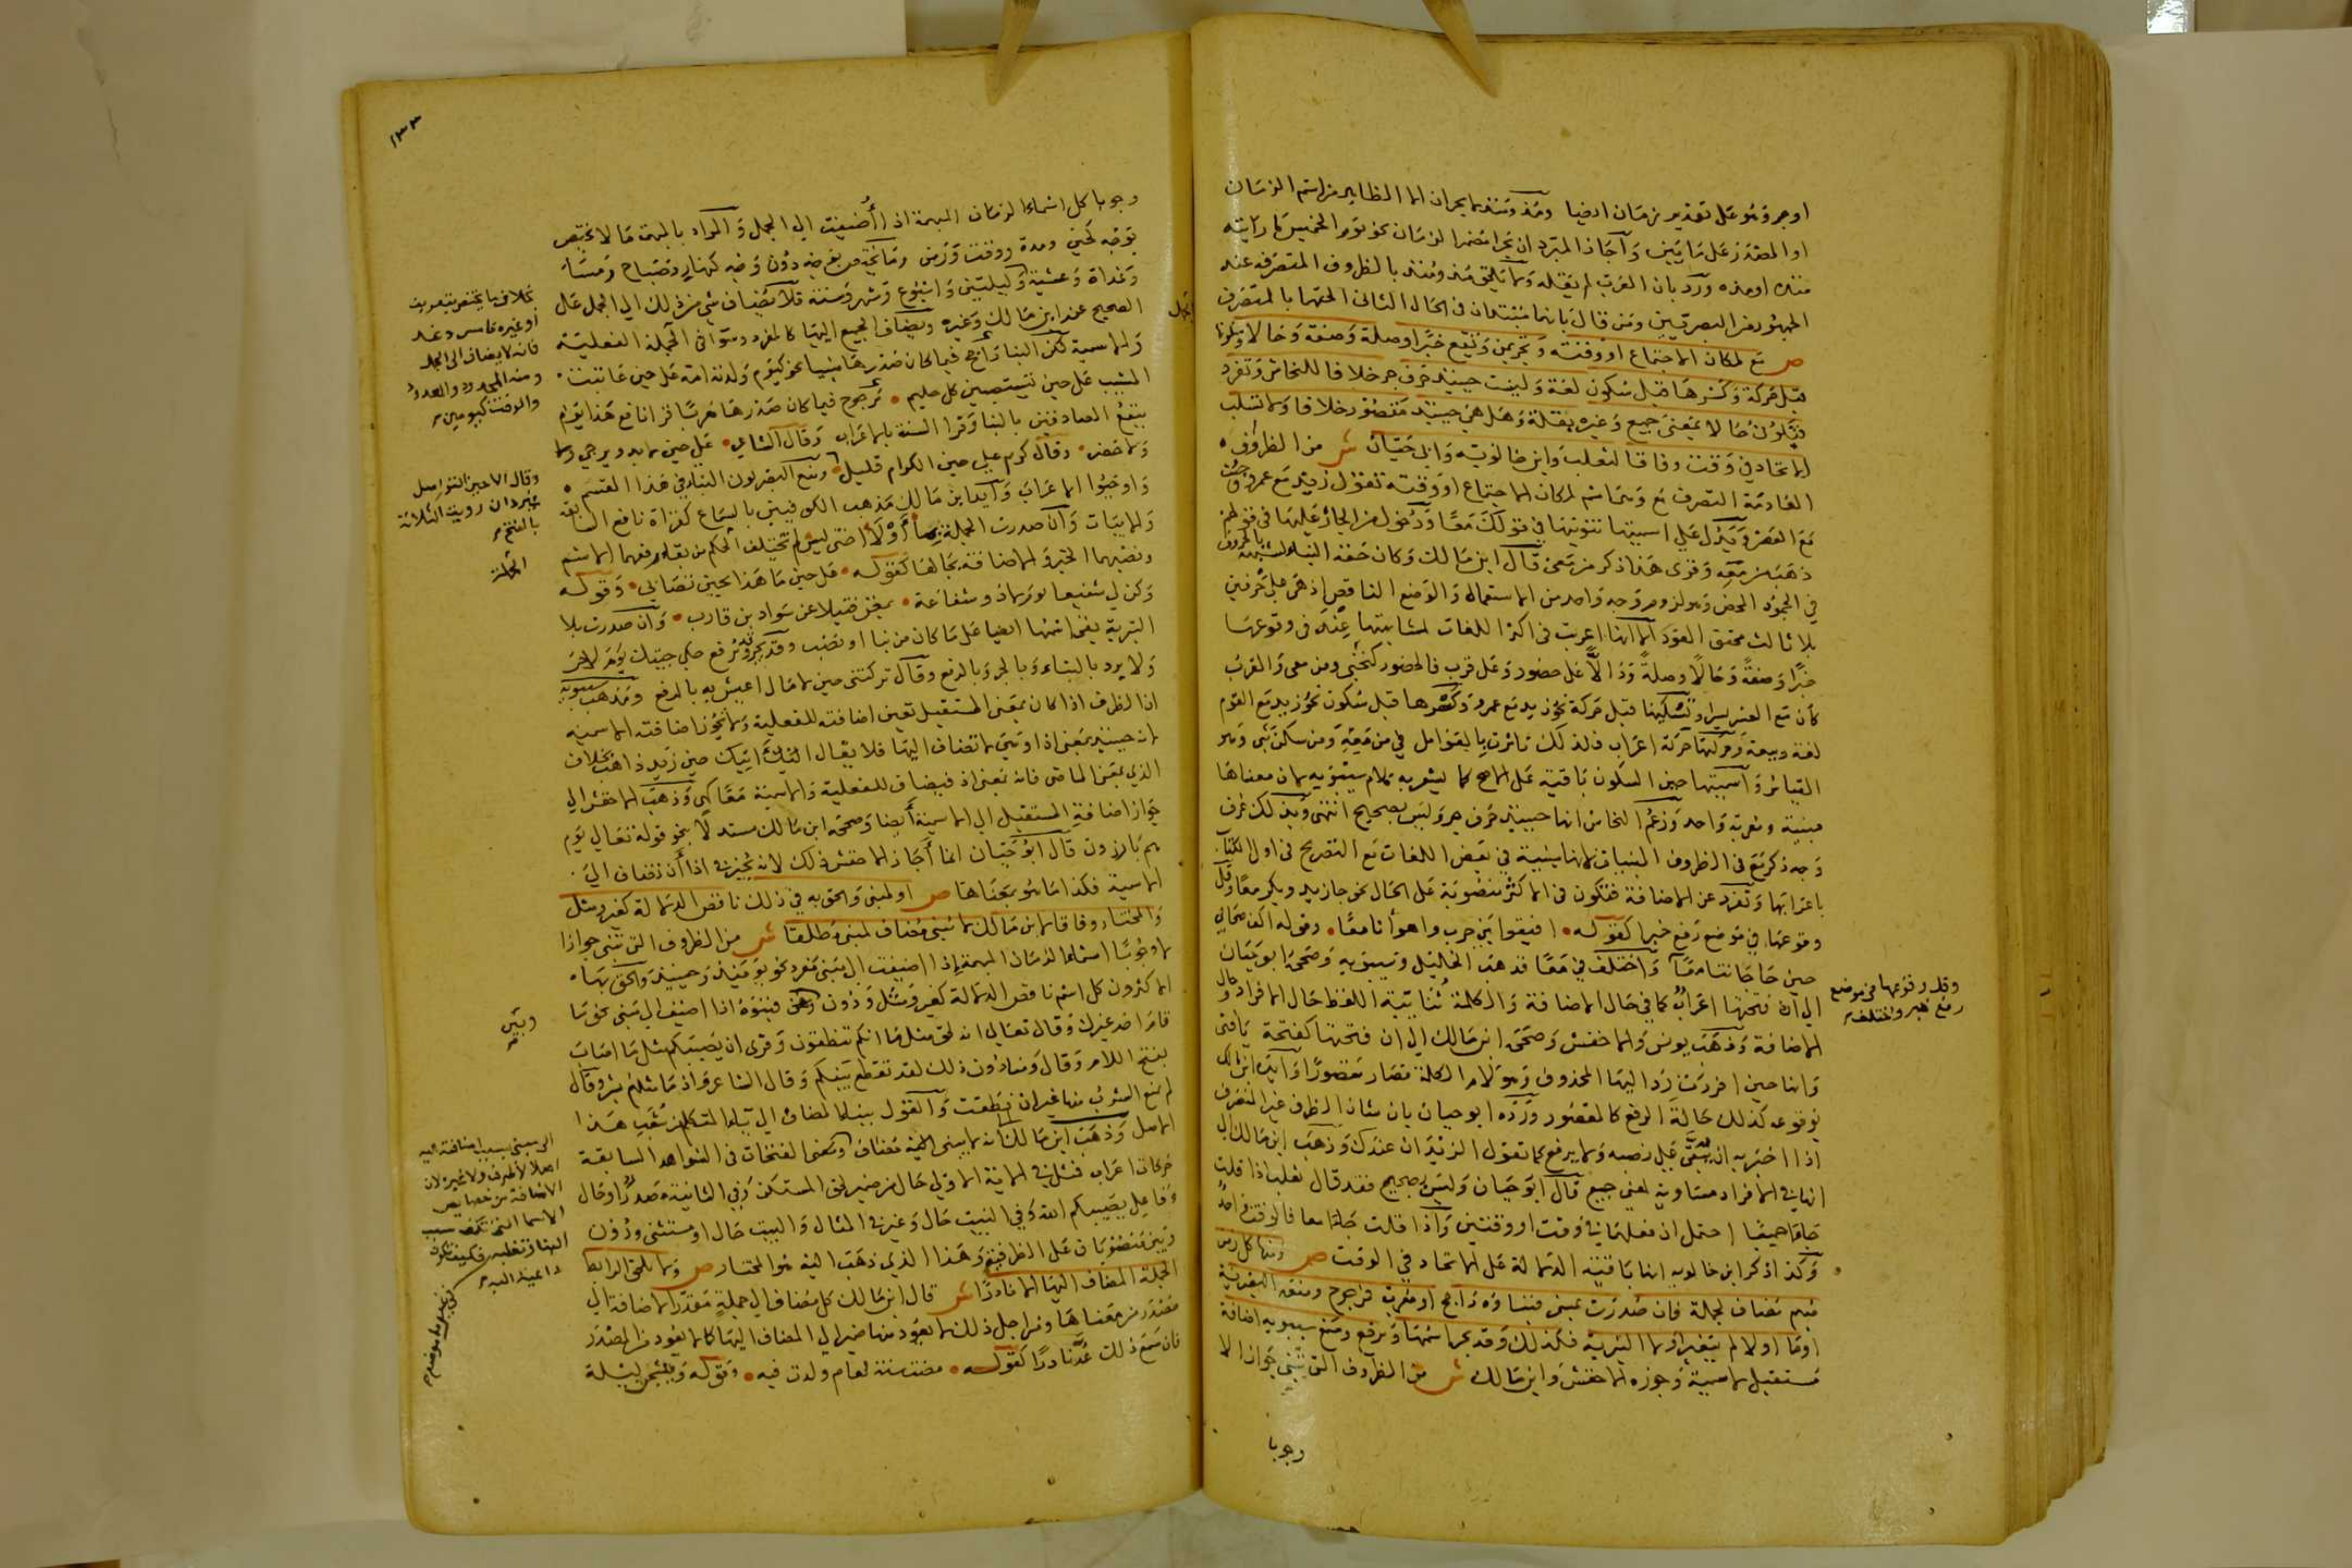 او مجرور هو على تقدير زمان ايضا ومذ ومنذ لا يجران الا الظاهر من اسم الزمان
او المصدر على ما يبين واجاز المبرد ان يجرا مضمر الزمان نحو يوم الخميس ما رايته
منذه او مذه ورد بان العرب لم تقله ولا تلحق مذ ومنذ بالظروف المتصرفة عند
الجمهور من البصريين ومن قال بانهما مبتدان في الحال الثاني الحقها بالمتصرف
ص مع لمكان الاجتماع او وقته وتجر بمن وتقع خبرا وصلة وصفة وحالا وسكونها
قبل حركة وكسرها قبل سكون لغة وليست حينئذ حرف جر خلافا للنحاس وتفرد
فتكون حالا بمعنى جميع وغيره بقلة وهل هي حينئذ مقصور خلاف ولا تسلب
الاتحاد في وقت وفاقا لثعلب وابن خالويه وابي حيان ش من الظروف
العادمة التصرف مع وهي اسم لمكان الاجتماع او وقته تقول زيد مع عمرو وجئت
مع العصر ويدل على اسميتها تنوينها في قولك معا ودخول من الجارة عليها في قولهم
ذهبت من معه وقرئ هذا ذكر من معي قال ابن مالك وكان حقه البناء لشبهه بالحروف
في الجمود المحض وهو لزوم وجه واحد من الاستعمال والوضع الناقص اذ هي على حرفين
بلا ثالث محقق العود الا انها اعربت في اكثر اللغات لمشابهتها عند في وقوعها
خبرا وصفة وحالا وصلة ودالا على حضور وعلى قرب فالحضور كنجني ومن معي والقرب
كان مع العسر يسرا وتسكينها قبل حركة نحو زيد مع عمرو وكسرها قبل سكون نحو زيد مع القوم
لغة ربيعة وحركتها حركة اعراب فلذلك تاثرت بالعوامل في من معه ومن سكن بنى وهو
القياس واسميتها حين السكون باقية على الاصح كما يشعر به كلام سيبويه لان معناها
مبنية ومعربة واحد وزعم النحاس انها حينئذ حرف جر وليس بصحيح انتهى وبذلك عرف
وجه ذكر مع في الظروف المبنيات لانها مبنية في بعض اللغات مع التصريح في اول الكتاب
باعرابها وتفرد عن الاضافة فتكون في الاكثر منصوبة على الحال نحو جا زيد وبكر معا وقل
وقوعها في موضع رفع خبرا كقوله • افيقوا بني حرب واهواؤنا معا • وقوله اكف صحابي
حين حاجاتنا معا واختلف في معا فذهب الخليل وسيبويه وصححه ابو حيان
الى ان فتحتها اعراب كما في حال الاضافة والكلمة ثنائية اللفظ حال الافراد وحال
الاضافة وذهب يونس والاخفش وصححه ابن مالك الى ان فتحتها كفتحة يا فتى
وانها حين افردت رد اليها المحذوف وهو لام الكلمة فصار مقصورا وايده ابن مالك
بوقوعه كذلك حالة الرفع كالمقصور ورده ابو حيان بان شان الظرف غير المتصرف
اذا اخبر به ان يبقى على نصبه ولا يرفع كما تقول الزيدان عندك وذهب ابن مالك الى
انها في الافراد مساوية لمعنى جميع قال ابو حيان وليس بصحيح فقد قال ثعلب اذا قلت
جاءا جميعا احتمل ان فعلهما في وقت او وقتين واذا قلت جاءا معا فالوقت واحد
وكذا ذكر ابن خالويه انها باقية الدلالة على الاتحاد في الوقت ص ومنها كل زمن
مبهم تضاف لجملة فان صدرت بمبنى فبناؤه راجح او معرب فمرجوح ومنعه البصرية
او ما او لا لم يتغير او لا التبرية فكذلك وقد يجر اسمها ويرفع ومنع سيبويه اضافة
مستقبل لاسمية وجوزه الاخفش وابن مالك ش من الظروف التي تبنى جوازا لا
وجوبا
وقل وقوعها في موضع
رفع خبر واختلف
١٣٣
وجوبا كل اسماء الزمان المبهمة اذا اضيفت الى الجمل والمراد بالمبهم ما لا يختص
بوجه كحين ومدة ووقت وزمن وما يختص بتعريف دون وجه كنهار وصباح ومساء
وغداة وعشية وليلتين واسبوع وشهر وسنة فلا يضاف شي من ذلك الى الجمل على
الصحيح عند ابن مالك وغيره ويضاف الجميع اليها كالمفرد وسواء في الجملة الفعلية
والاسمية لكن البناء راجح فيما كان صدرها مبنيا نحو كيوم ولدته امه على حين عاتبت
المشيب على حين يستصبين كل حليم • مرجوح فيما كان صدرها معربا قرا نافع هذا يوم
ينفع الصادقين بالبنا وقرا السبعة بالاعراب وقال الشاعر • على حين لا بدو يرجى ولا
ولا حضر • وقال كريم على حين الكرام قليل • ومنع البصريون البناء في هذا القسم
واوجبوا الاعراب وايد ابن مالك مذهب الكوفيين بالسماع كقراة نافع السابقة
والابيات وان صدرت الجملة بما او لا اختي ليس لم يختلف الحكم من بقاء رفعهما الاسم
ونصبهما الخبر والاضافة بحالها كقوله • على حين ما هذا بحين تصابي • وقوله
وكن لي شفيعا يوم لا ذو شفاعة • بمغن فتيلا عن سواد بن قارب • وان صدرت بلا
التبرية بقي اسمها ايضا على ما كان من بنا او نصب وقد يجر وقد يرفع حكي جيتك يوم لا حر
ولا برد بالبناء وبالجر وبالرفع وقال تركتني حين لا مال اعيش به بالرفع ومذهب سيبويه
اذ الظرف اذا كان بمعنى المستقبل تعين اضافته للفعلية ولا يجوز اضافته الاسمية
لانه حينئذ بمعنى اذا وهي لا تضاف اليها فلا يقال اتيك حين زيد ذاهب بخلاف
الذي بمعنى الماضي فانه بمعنى اذ فيضاف للفعلية والاسمية معا كهي وذهب الاخفش الى
جواز اضافة المستقبل الى الاسمية ايضا وصححه ابن مالك مستدلا بنحو قوله تعالى يوم
هم بارزون قال ابو حيان انما اجاز الاخفش ذلك لانه يجيز في اذا ان تضاف الى
الاسمية فكذا ما هو بمعناها ص او لمبنى والحق به في ذلك ناقص الدلالة كغير ومثل
والمختار وفاقا لابن مالك لا يبنى مضاف لمبني مطلقا ش من الظروف التي تبنى جوازا
لا وجوبا اسماء الزمان المبهمة اذا اضيفت الى مبني مفرد نحو يومئذ وحينئذ والحق بها
الاكثرون كل اسم ناقص الدلالة كغير ومثل ودون وبين فبنوه اذا اضيف الى مبني نحو ما
قام احد غيرك وقال تعالى انه لحق مثل ما انكم تنطقون وقرئ ان يصيبكم مثل ما اصاب
بفتح اللام وقال ومنا دون ذلك لقد تقطع بينكم وقال الشاعر واذ ما مثلهم بشر وقال
لم يمنع الشرب منها غير ان نطقت والقول ببناء المضاف الى ياء المتكلم من شعب هذا
الاصل وذهب ابن مالك الى انه لا يبنى اليه مضاف وتخرج الفتحات في الشواهد السابقة
حركات اعراب فمثل في الاية الاولى حال من ضمير لحق المستكن وفي الثانية مصدر وقال
وفاعل يصيبكم الله وفي البيت حال وغير في المثال والبيت حال او مستثنى ودون
وبين منصوبان على الظرفية وهذا الذي ذهب اليه هو المختار ص ولا يلحق الرابط
الجملة المضاف اليها الا نادرا ش قال ابن مالك كل مضاف الى جملة مقدر الاضافة الى
مصدر من معناها ومن اجل ذلك لا يعود منها ضمير الى المضاف اليها كما لا يعود من المصدر
فان سمع ذلك عد نادرا كقوله • مضت سنة لعام ولدت فيه • وقوله وتسخن ليلة
بخلاف ما يختص بتعريف
او غيره كامس وغد
فانه لا يضاف الى الجمل
ومنه المحدود والمعدود
والموقت كيومين
وبين